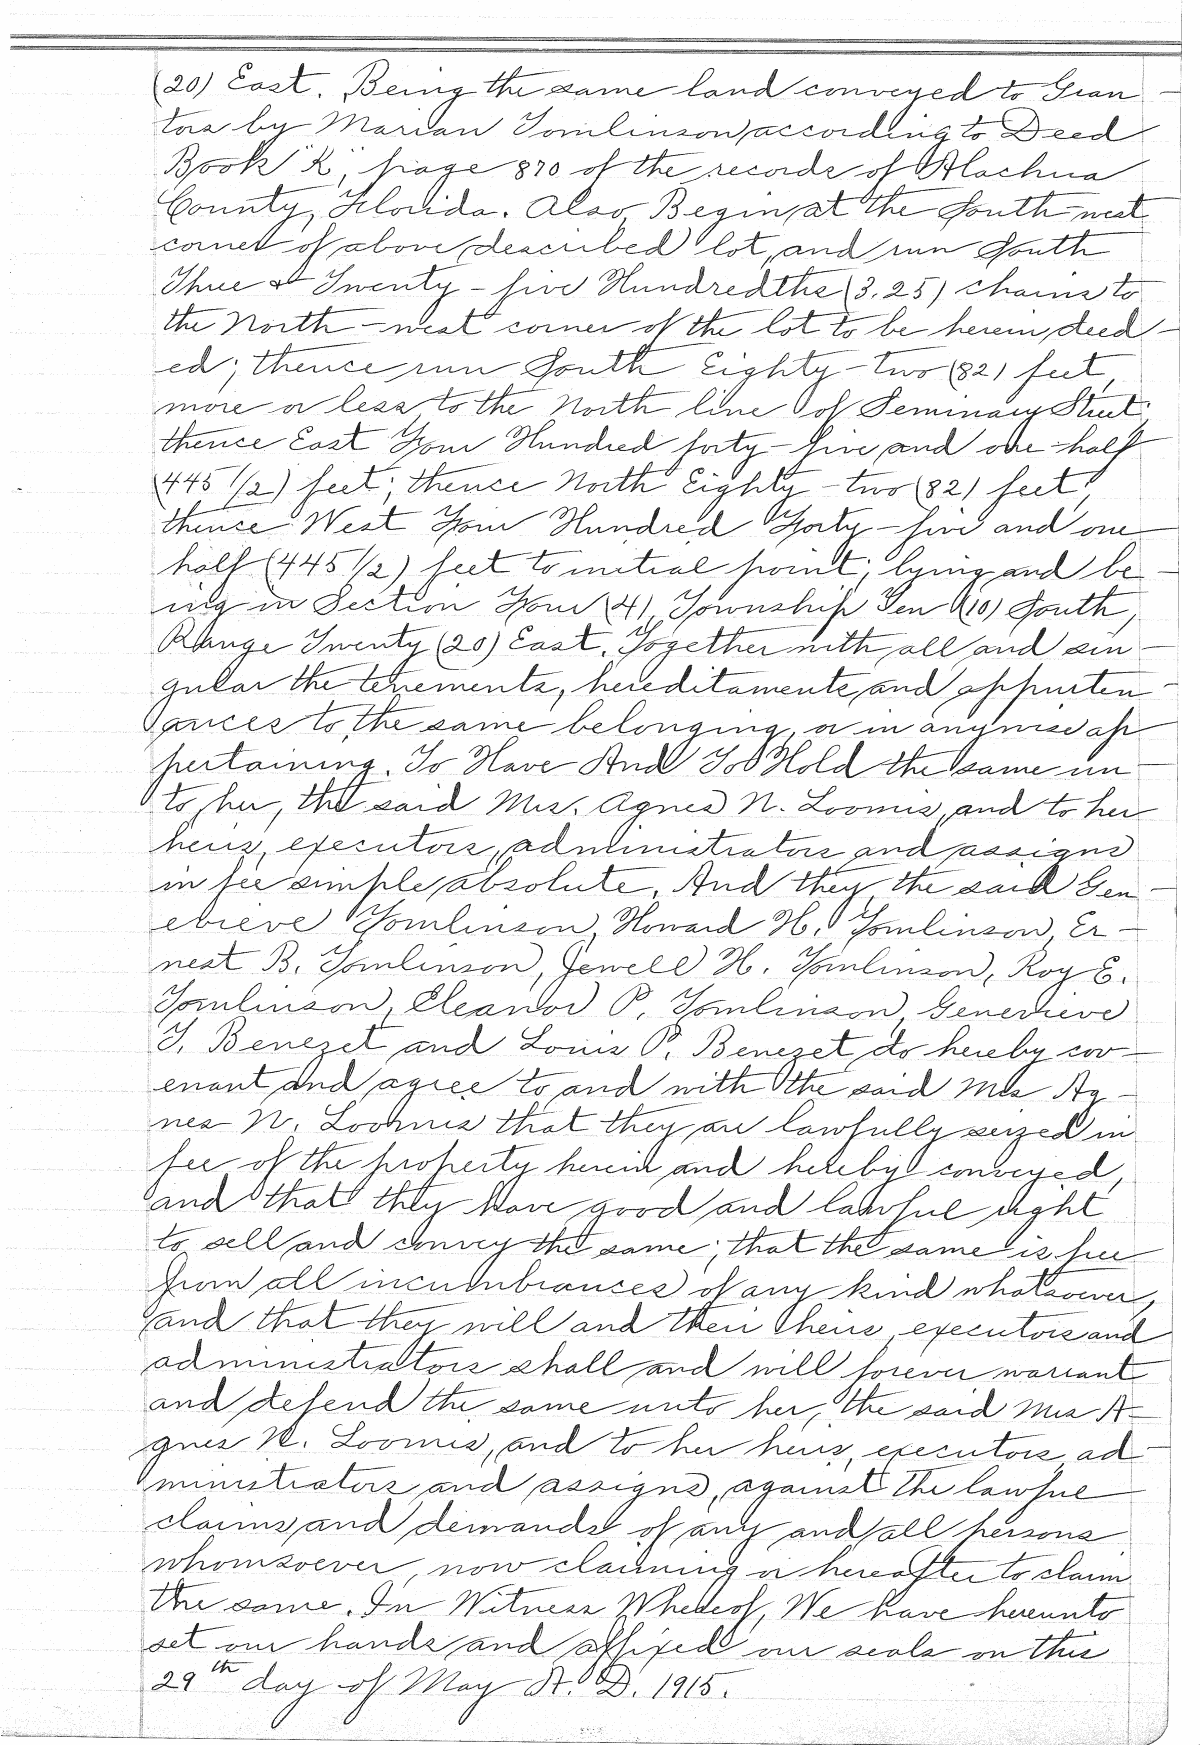 (20) East. Being the same land conveyed to Gran-
tors by Marian Tomlinson, according to Deed
Book "K", page 870 of the records of Alachua
County, Florida. Also, Begin at the South-west
corner of above described lot, and run South
Three & Twenty-five Hundredths (3.25) chains to
the North-west corner of the lot to be herein deed-
ed; thence run South Eighty-two (82) feet,
more or less, to the North line of Seminary Street;
thence East Four Hundred forty-five and one-half
(445 1/2) feet; thence North Eighty-two (82) feet,
thence West Four Hundred Forty-five and one
half (445 1/2) feet to initial point; lying and be-
ing in Section Four (4), Township Ten (10) South,
Range Twenty (20) East. Together with all and sin-
gular the tenements, hereditaments and appurten-
ances to the same belonging, or in anywise ap
pertaining. To Have And To Hold the same un-
to her, the said Mrs. Agnes N. Loomis, and to her
heirs, executors, administrators and assigns
in fee simple absolute. And they, the said Gen-
evieve Tomlinson, Howard H. Tomlinson, Er-
nest B. Tomlinson, Jewell H. Tomlinson, Roy E.
Tomlinson, Eleanor P. Tomlinson, Genevieve
T. Benezet and Louis P. Benezet, do hereby cov-
enant and agree to and with the said Mrs Ag-
nes N. Loomis that they are lawfully seized in
fee of the property herein and hereby conveyed,
and that they have good and lawful right
to sell and convey the same; that the same is free
from all incumbrances of any kind whatsoever,
and that they will and their heirs, executors and
administrators shall and will forever warrant
and defend the same unto her, the said Mrs A-
gnes N. Loomis, and to her heirs, executors, ad-
ministrators and assigns, against the lawful
claims and demands of any and all persons
whomsoever, now claiming or hereafter to claim
the same. In Witness Whereof, We have hereunto
set our hands and affixed our seals on this
29th day of May A. D. 1915.